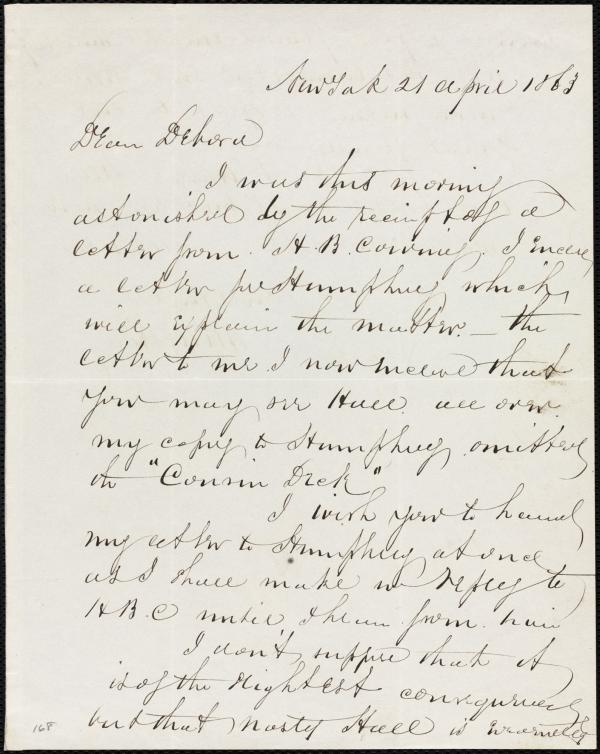 New York 21 April 1863
Dear Debora
I was this morning
astonished by the receipt of a
letter from H. B. Cowing. I enclose
a letter for Humphrey which
will explain the matter. — the
letter to me I now enclose that
you may see Hall all over.
my copy to Humphrey omitted
the "Cousin Dick"
I wish you to hand
my letter to Humphrey at once
as I shall make no reply to
H B. C until I hear from him
I don't suppose that it
is of the slightest consequence
but that nasty Hall is
168